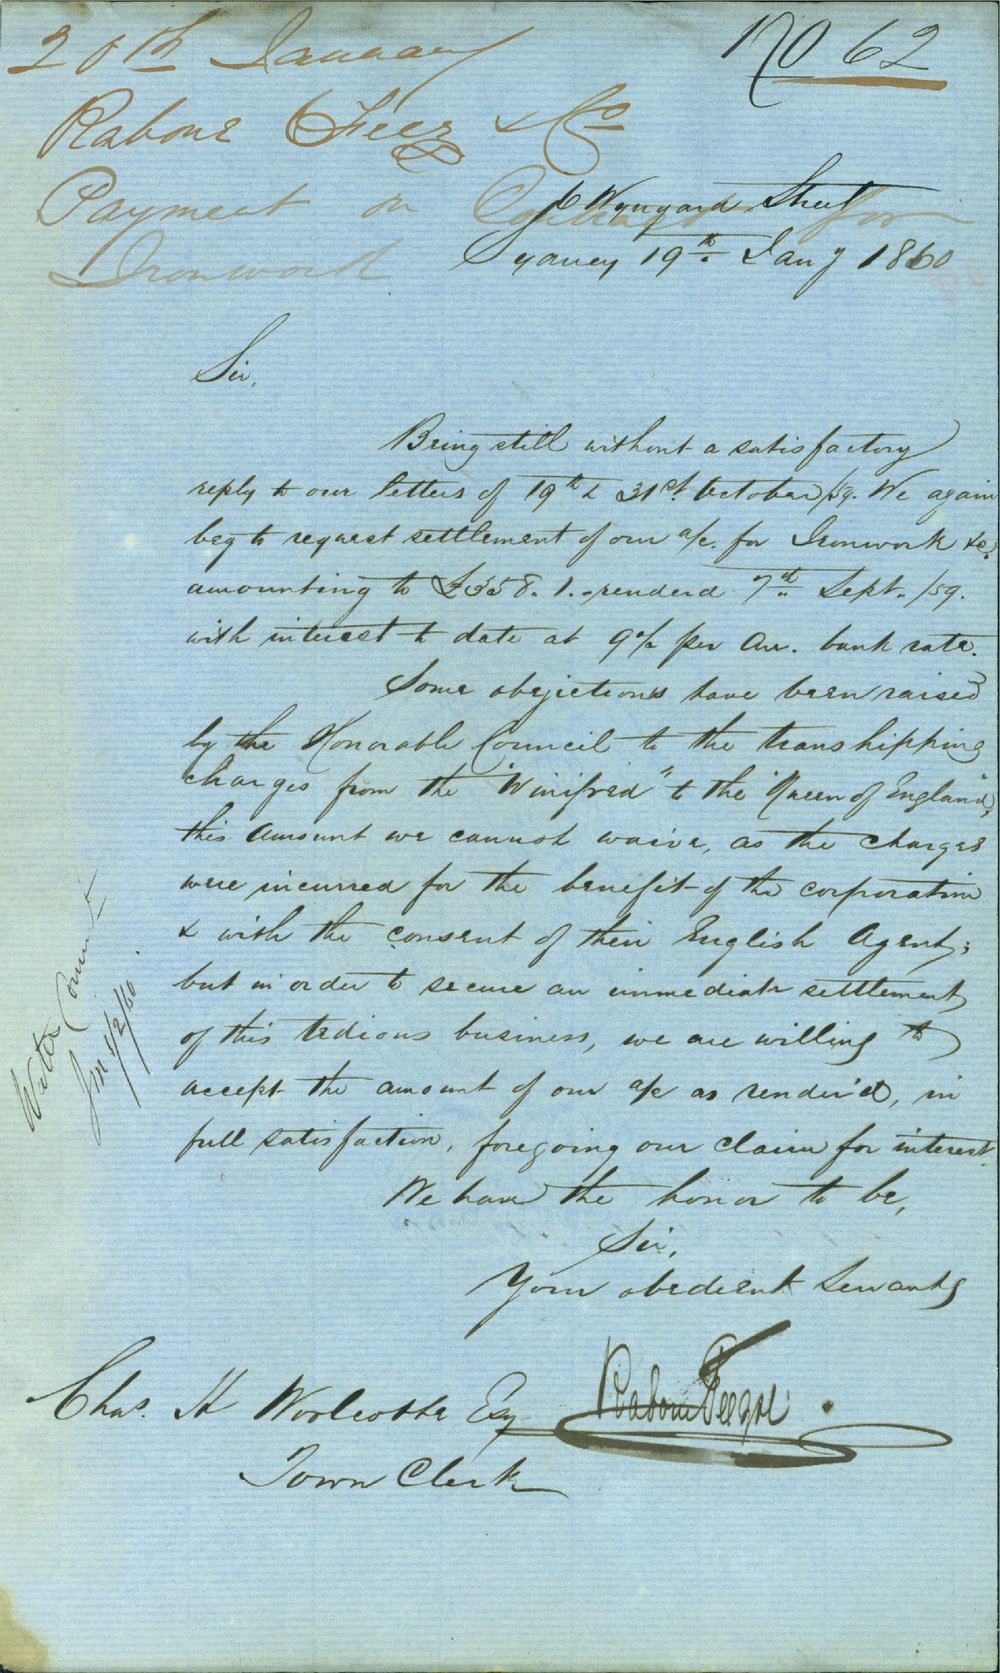 20th January
No 62
Rabone Feez & Co
Payment on Contract for
Ironwork
6 Wynyard Street
Sydney 19th Jany 1860
Sir,
Being still without a satisfactory
reply to our letters of 19th & 31st October/59. We again
beg to request settlement of our a/c. for Ironwork &c.
amounting to £358. 1. - renderd 7th Sept. /59.
with interest to date at 9% per An. bank rate.
Some objections have been raised
by the Honorable Council to the transhipping
charges from the "Winifred" to the "Queen of England",
this amount we cannot waive, as the charges
were incurred for the benefit of the corporation
& with the consent of their English Agent;
but in order to secure an immediate settlement
of this tedious business, we are willing to
accept the amount of our a/c as render'd, in
full satisfaction, foregoing our claim for interest.
We have the honor to be,
Sir,
Your obedient Servants
Rabone Feez & Co.
Chas. H Woolcott Esq
Town Clerk
Water Committ
1/2/60.